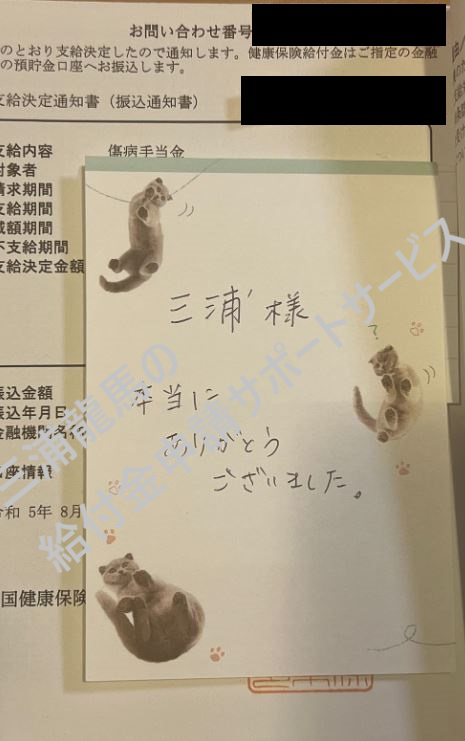 お問い合わせ番号
のとおり支給決定したので通知します。健康保険給付金はご指定の金融
の預貯金口座へお振込します。
支給決定通知書（振込通知書）
支給内容 傷病手当金
対象者
請求期間
支給期間
減額期間
不支給期間
支給決定金額
三浦様
本当に
ありがとう
ございました。
振込金額
振込年月日
金融機関名称
口座情報
令和 5年 8月
国健康保険
三浦龍馬の
給付金申請サポートサービス